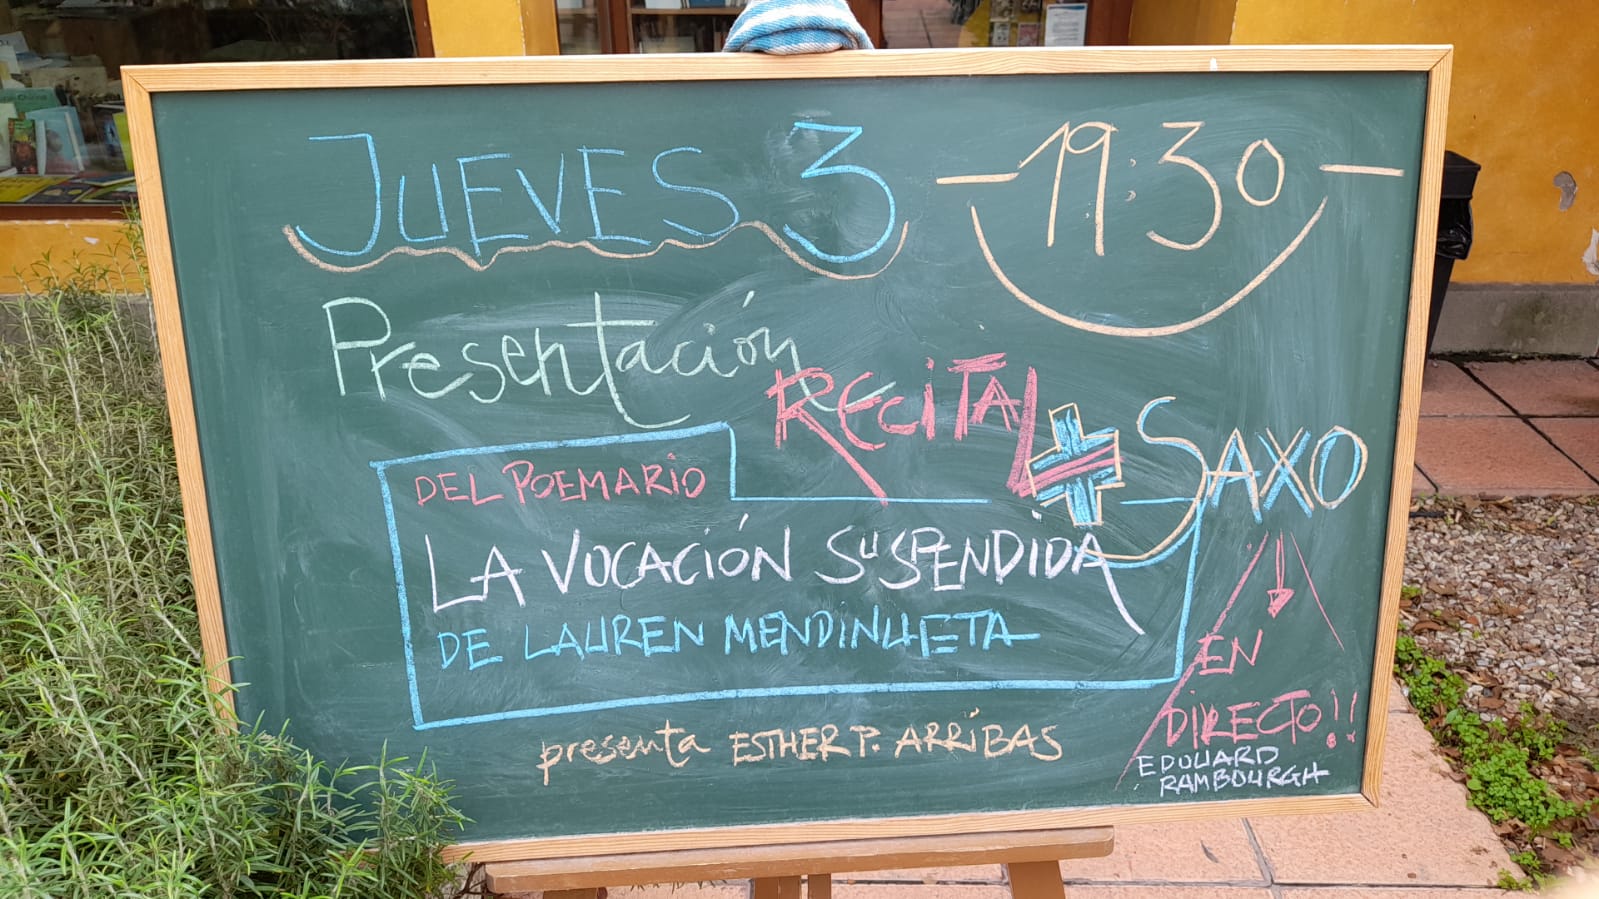 JUEVES 3 - 19:30 -
Presentación
RECITAL + SAXO
DEL POEMARIO
LA VOCACIÓN SUSPENDIDA
DE LAUREN MENDINUETA
EN
DIRECTO!!
presenta ESTHER P. ARRIBAS
EDOUARD
RAMBOURGH